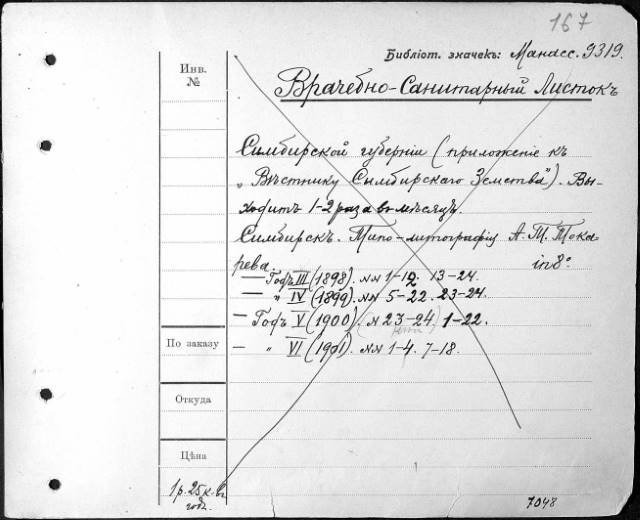 167
Библіот. значекъ: Манасс. 9319.
Инв.
№
Врачебно-Санитарный Листокъ
Симбирской губерніи (приложеніе къ
„Вѣстнику Симбирскаго Земства"). Вы-
ходитъ 1-2 раза въ мѣсяцъ.
Симбирскъ. Типо-литографія А. Т. Тока-
рева. in 8°.
— Годъ III (1898). №№ 1-12. 13-24.
— „ IV (1899). №№ 5-22. 23-24.
— Годъ V (1900). (№ 23-24) 1-22.
— „ VI (1901). №№ 1-4. 7-18.
По заказу
Откуда
Цѣна
1 р. 25 к. въ
годъ.
7048